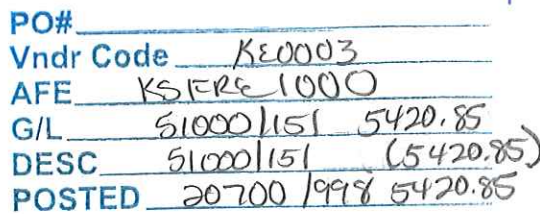 PO#
Vndr Code KE0003
AFE KSFRE1000
G/L 51000/151 5420.85
DESC 51000/151 (5420.85)
POSTED 20700/998 5420.85